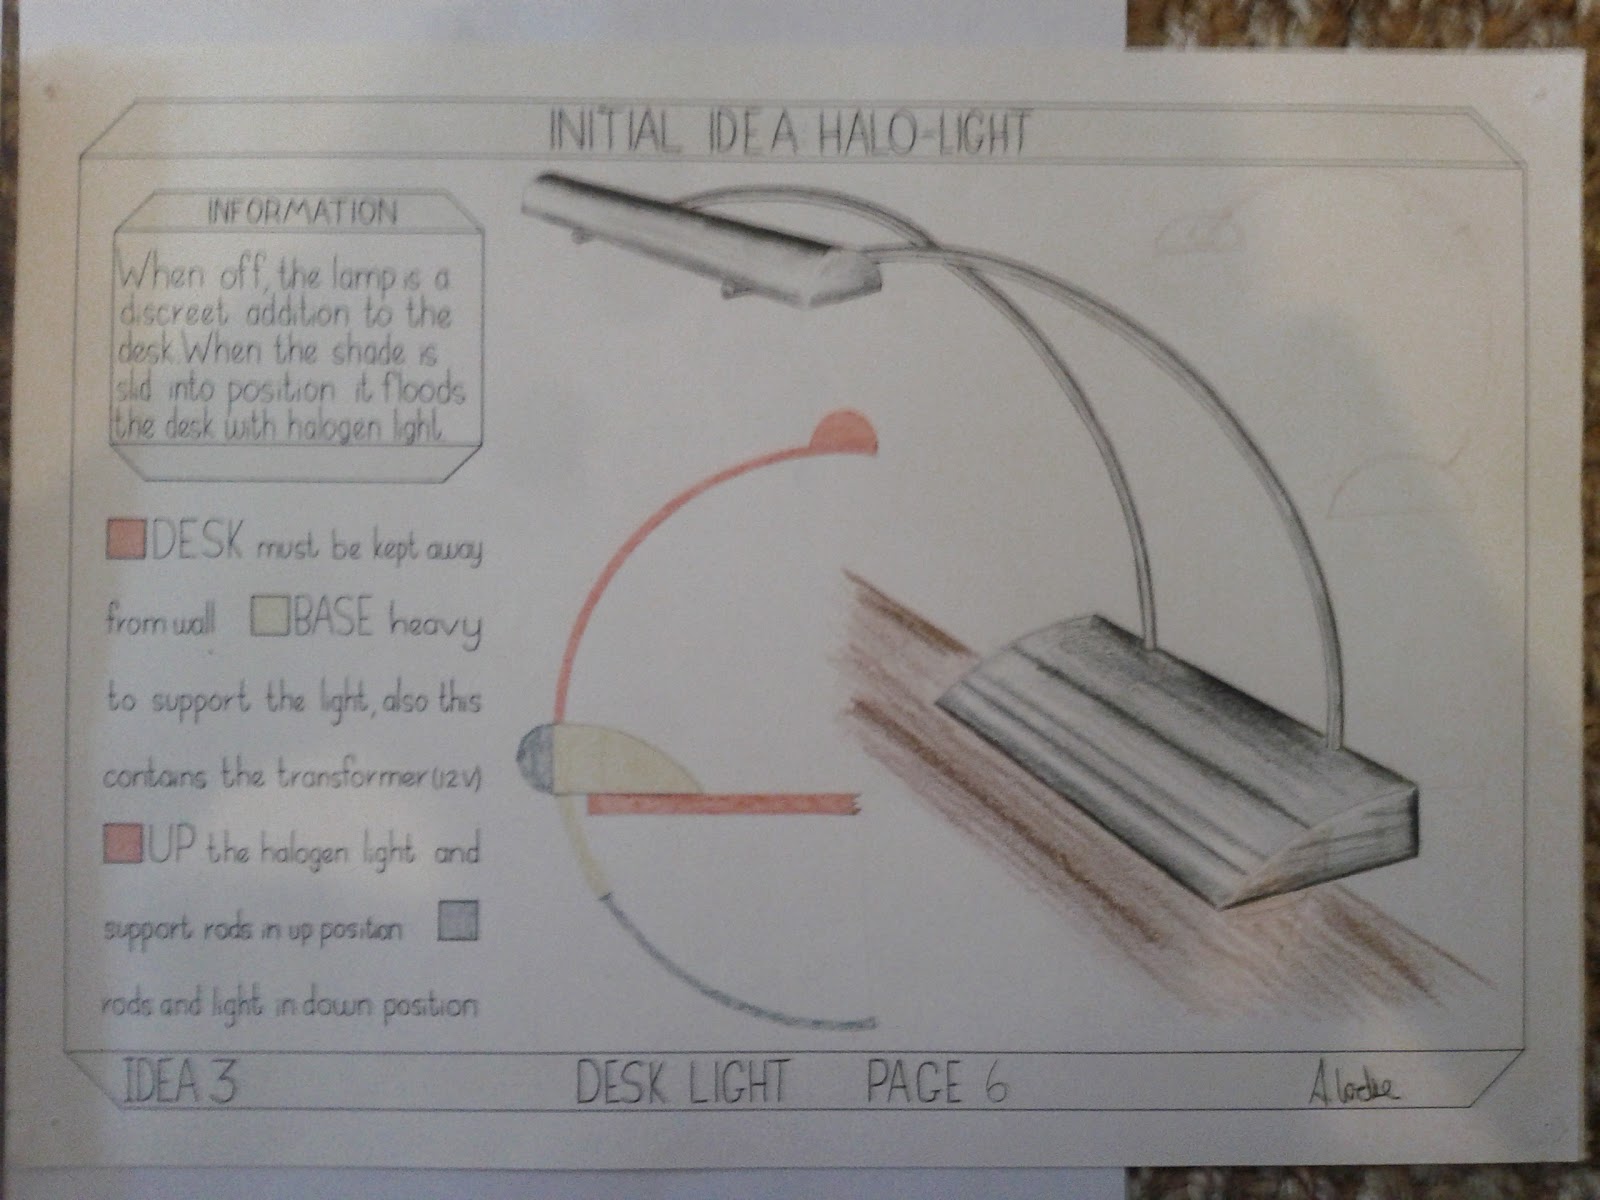 INITIAL IDEA HALO-LIGHT
INFORMATION
When off, the lamp is a
discreet addition to the
desk. When the shade is
slid into position it floods
the desk with halogen light
DESK must be kept away
from wall BASE heavy
to support the light, also this
contains the transformer (12V)
UP the halogen light and
support rods in up position
rods and light in down position
IDEA 3
DESK LIGHT PAGE 6